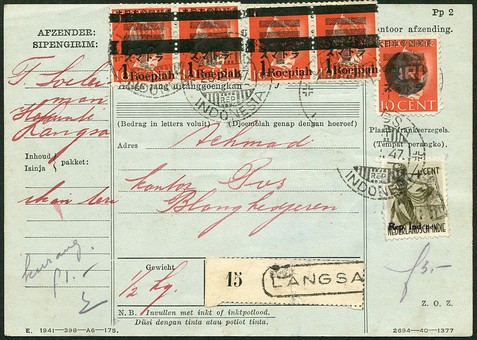 Pp 2
AFZENDER:
SIPENGIRIM:
1 Roepiah 1 Roepiah 1 Roepiah 1 Roepiah
10 CENT
INDONESIA
(Bedrag in letters voluit) (Djoemlah genap dengan hoeroef)
Adres
Achmad
Langsa
Inhoud
Isinja
pakket:
(Tempat perangko).
REP
47
INDONESIA
CENT
Rep. Indonesia
NEDERLANDSCH-INDIE
kantor Pos
Blangkedjeren
ikan teri
kurang
f1.-
Gewicht
1/2 kg.
15
LANGSA
f3.-
Z. O. Z.
N. B. Invullen met inkt of inktpotlood.
Diisi dengan tinta atau potlot tinta.
E. 1941—398—A6—175.
2694-40-1377